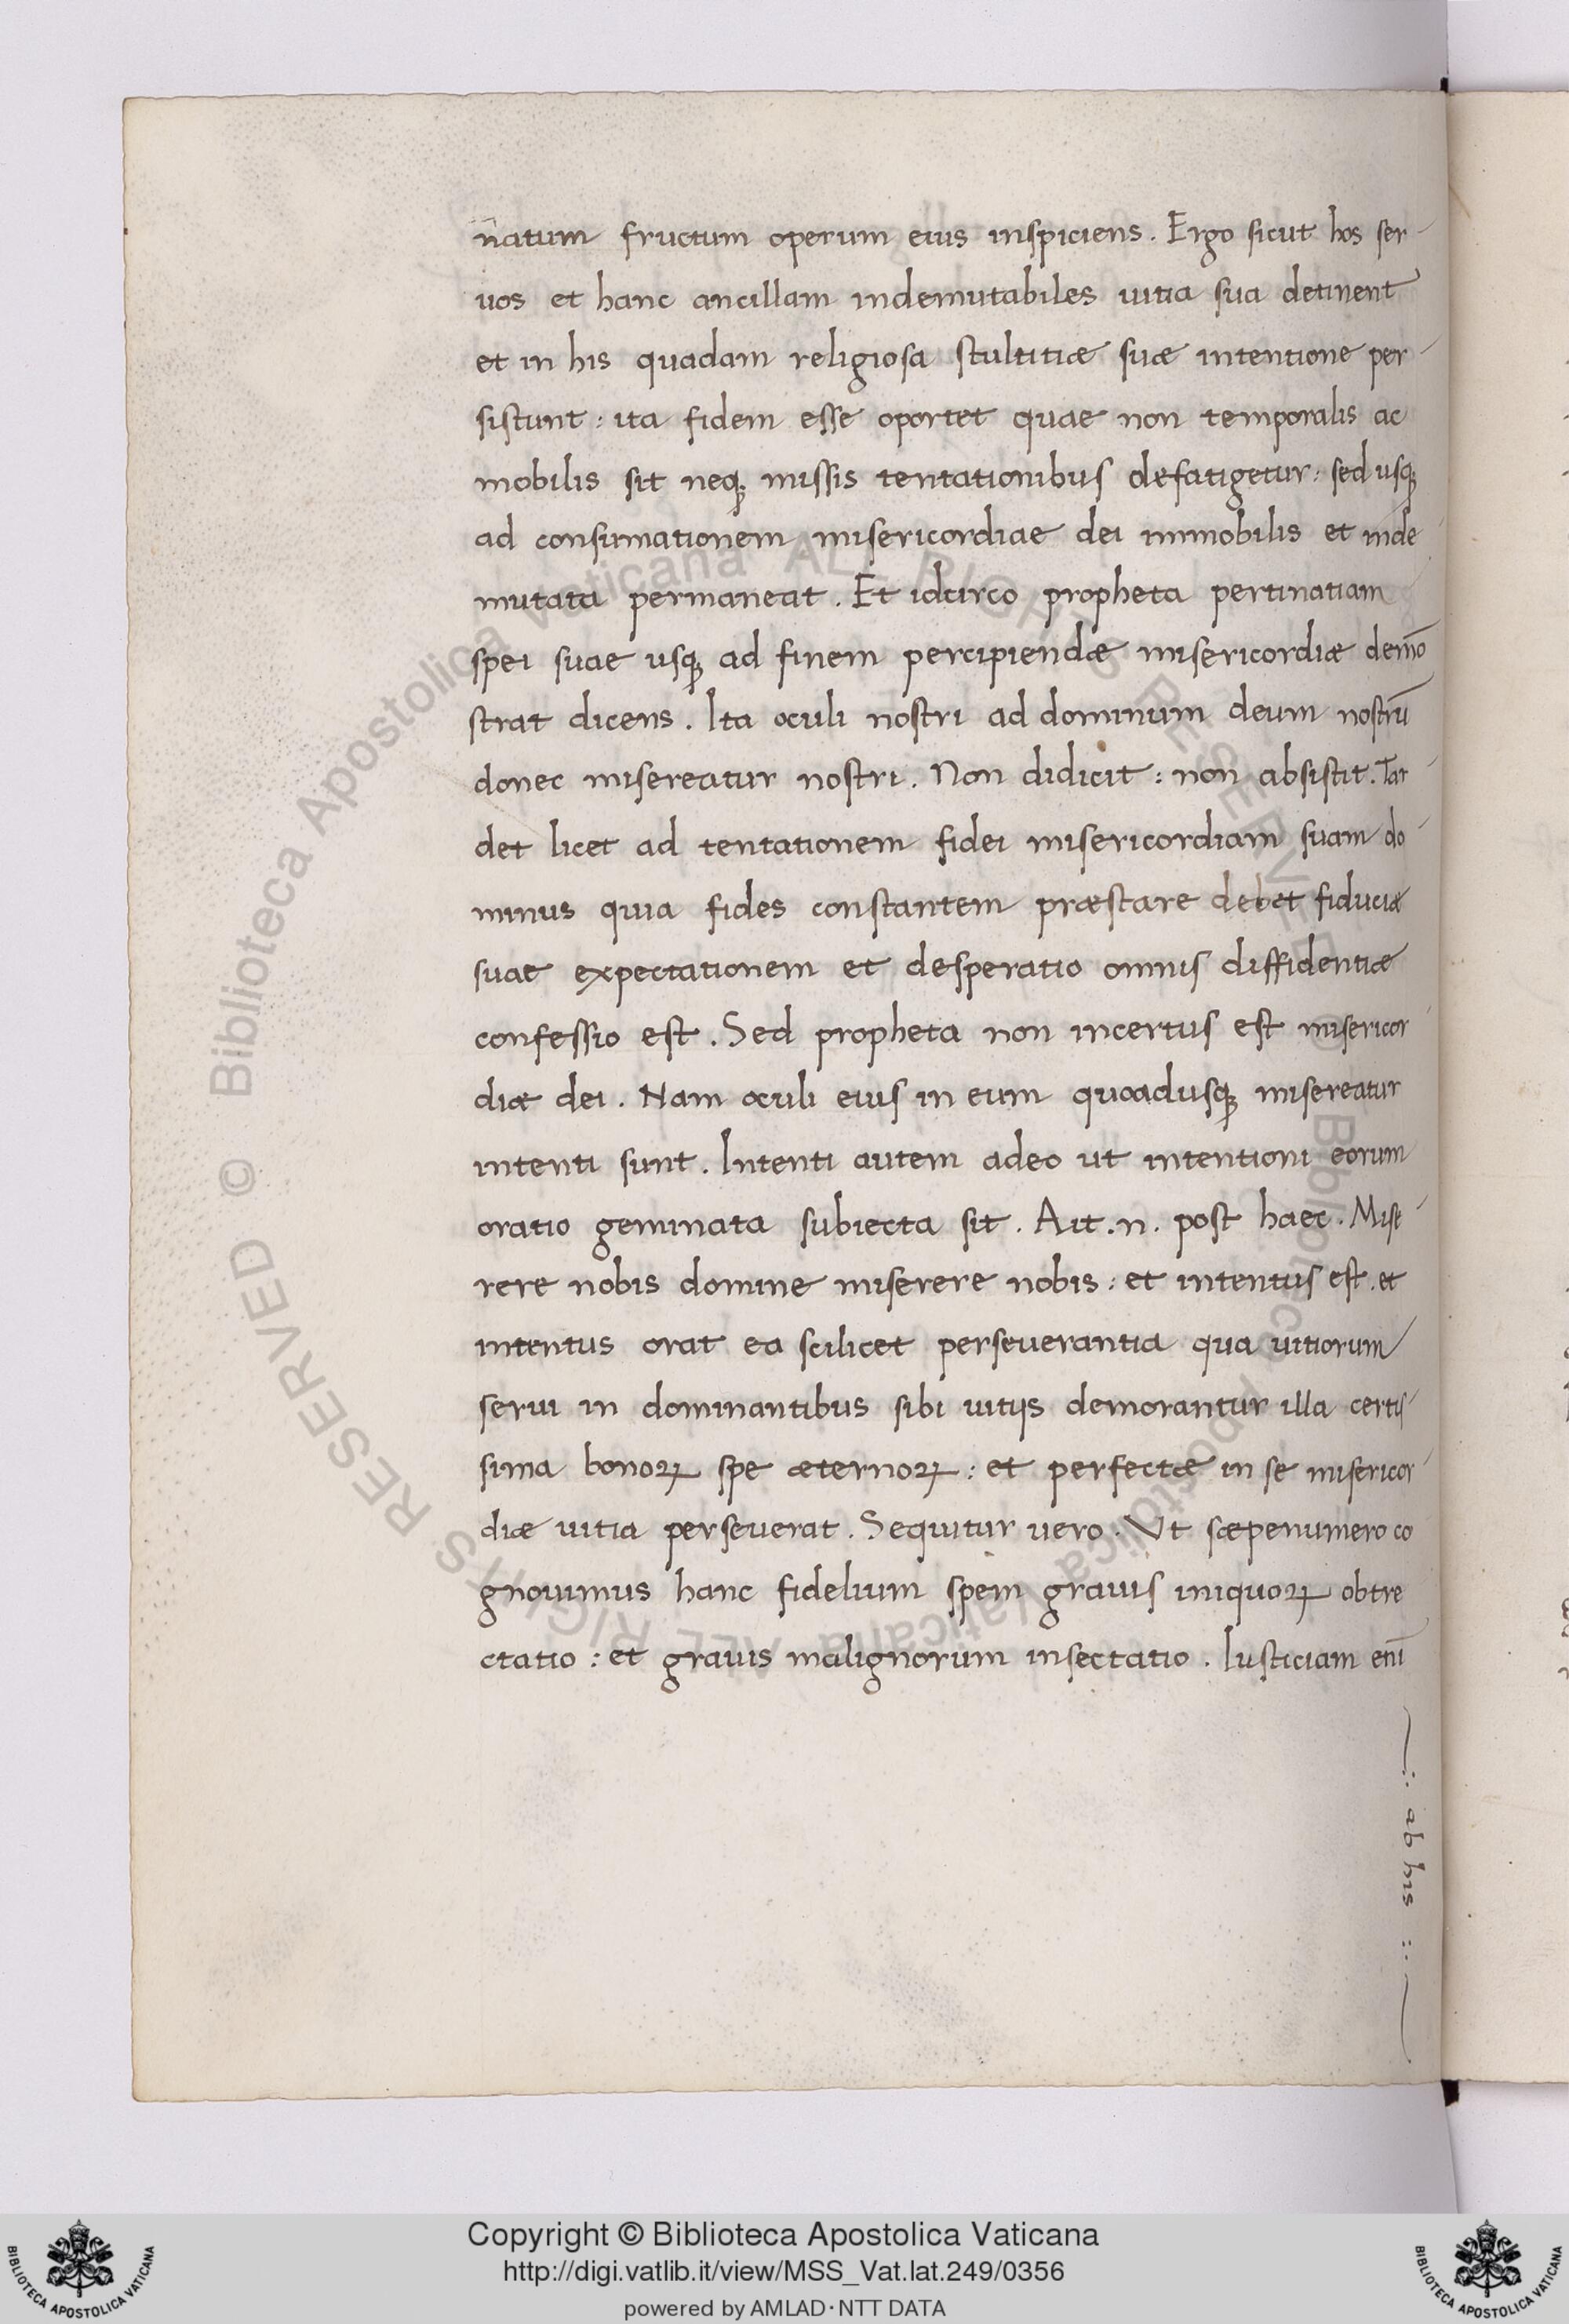 n̄atum fructum operum eius inspiciens. Ergo sicut hos ser
uos et hanc ancillam indemutabiles uitia sua detinent
et in his quadam religiosa stultitiæ suæ intentione per
sistunt: ita fidem esse oportet quae non temporalis ac
mobilis sit neqꝫ missis tentationibus defatigetur: sed usqꝫ
ad consumationem misericordiae dei immobilis et inde
mutata permaneat. Et idcirco propheta pertinatiam
spei suae usqꝫ ad finem percipiendæ misericordiæ demō
strat dicens. Ita oculi nostri ad dominum deum nostrū
donec misereatur nostri. Non didicit: non absistit. Tar
det licet ad tentationem fidei misericordiam suam do
minus quia fides constantem præstare debet fiduciæ
suae expectationem et desperatio omnis diffidentiæ
confessio est. Sed propheta non incertus est misericor
diæ dei. Nam oculi eius in eum quoadusqꝫ misereatur
intenti sunt. Intenti autem adeo ut intentioni eorum
oratio geminata subiecta sit. Ait .n. post haec. Mise
rere nobis domine miserere nobis: et intentus est. et
intentus orat ea scilicet perseuerantia qua uitiorum
serui in dominantibus sibi uitijs demorantur illa certis
sima bonoꝝ spe æternoꝝ: et perfectæ in se misericor
diæ uitia perseuerat. Sequitur uero. Vt sæpenumero co
gnouimus hanc fidelium spem grauis iniquoꝝ obtre
ctatio: et grauis malignorum insectatio. Iusticiam eni̅
ab his
© Biblioteca Apostolica Vaticana ALL RIGHTS RESERVED
© Biblioteca Apostolica Vaticana ALL RIGHTS RESERVED
Copyright © Biblioteca Apostolica Vaticana
http://digi.vatlib.it/view/MSS_Vat.lat.249/0356
powered by AMLAD·NTT DATA
BIBLIOTECA APOSTOLICA VATICANA
BIBLIOTECA APOSTOLICA VATICANA